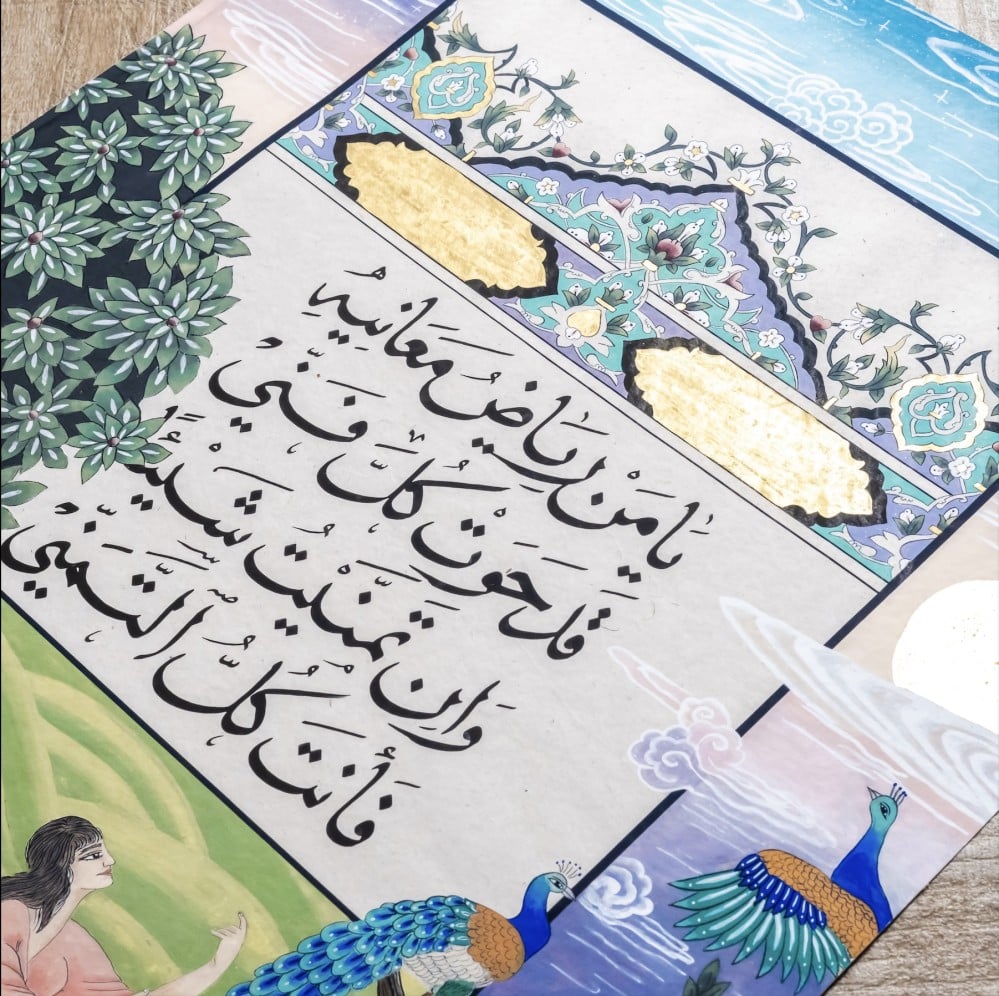 يَا مَنْ رِيَاضُ مَعَانِيهِ
قَدْ حَوَتْ كُلَّ فَنِّي
وَإِنْ تَمَنَّيْتُ شَيْئًا
فَأَنْتَ كُلُّ ٱلتَّمَنِّي